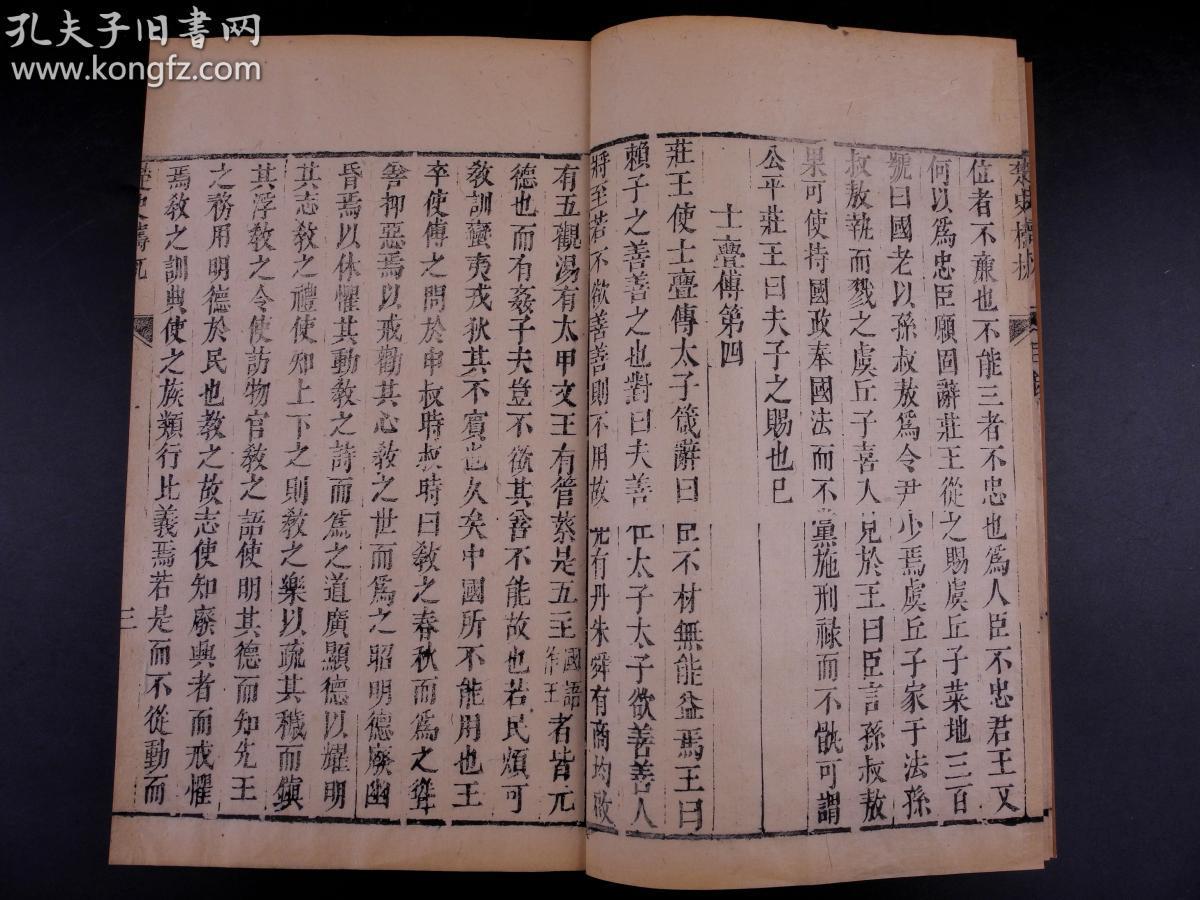 孔夫子旧书网
www.kongfz.com
楚史檮杌
位者不廉也不能三者不忠也爲人臣不忠君王又
何以爲忠臣願固辭莊王從之賜虞丘子菜地三百
號曰國老以孫叔敖爲令尹少焉虞丘子家干法孫
叔敖執而戮之虞丘子喜入見於王曰臣言孫叔敖
果可使持國政奉國法而不黨施刑祿而不骫可謂
公平莊王曰夫子之賜也已
士亹傅第四
莊王使士亹傅太子箴辭曰臣不材無能益焉王曰
賴子之善善之也對曰夫善在太子太子欲善善人
將至若不欲善善則不用故堯有丹朱舜有商均啟
有五觀湯有太甲文王有管蔡是五王國語作王者皆元
德也而有姦子夫豈不欲其善不能故也若民煩可
教訓蠻夷戎狄其不賓也久矣中國所不能用也王
卒使傅之問於申叔時叔時曰教之春秋而爲之聳
善抑惡焉以戒勸其心教之世而爲之昭明德廢幽
昏焉以休懼其動教之詩而爲之道廣顯德以耀明
其志教之禮使知上下之則教之樂以疏其穢而鎮
其浮教之令使訪物官教之語使明其德而知先王
之務用明德於民也教之故志使知廢興者而戒懼
焉教之訓典使之族類行比義焉若是而不從動而
楚史檮杌
三